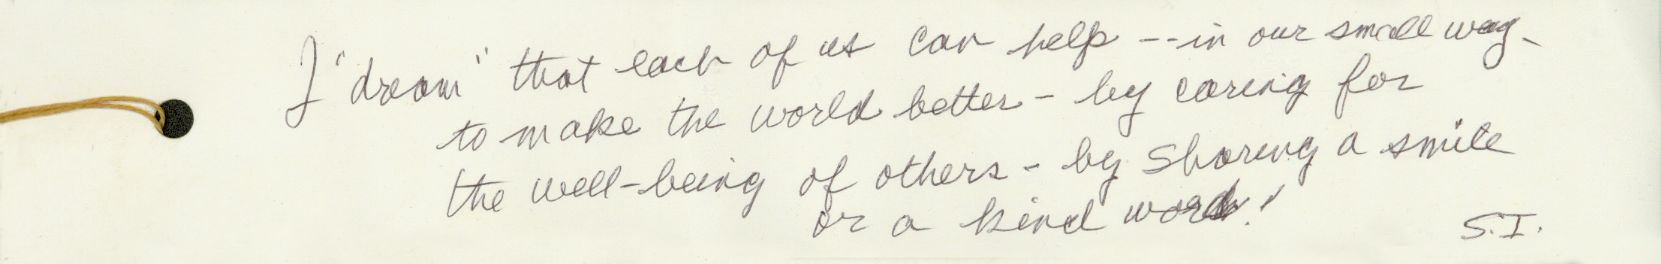 I 'dream' that each of us can help -- in our small way -
to make the world better - by caring for
the well-being of others - by sharing a smile
or a kind word!
S.I.